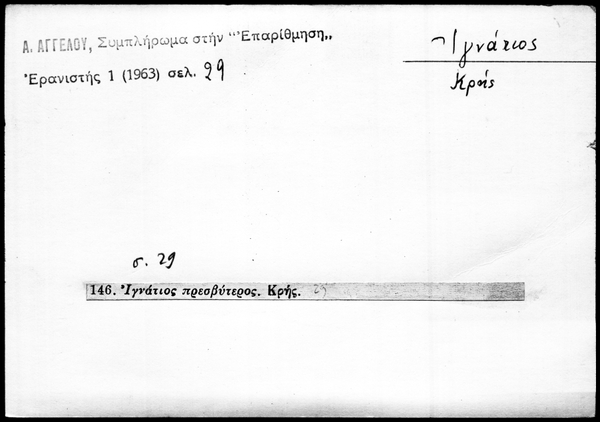 Α. ΑΓΓΕΛΟΥ, Συμπλήρωμα στήν "Ἐπαρίθμηση„
Ἐρανιστής 1 (1963) σελ. 29
Ἰγνάτιος
Κρής
σ. 29
146. Ἰγνάτιος πρεσβύτερος. Κρής. 29